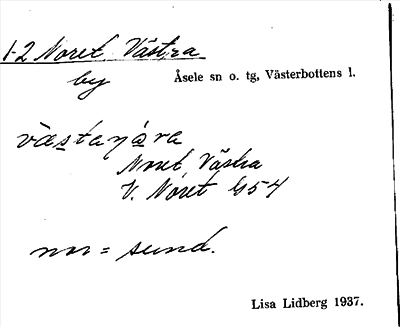 1-2 Noret Västra
by
Åsele sn o. tg, Västerbottens l.
Noret, Västra
V. Noret
nor = sund.
Lisa Lidberg 1937.